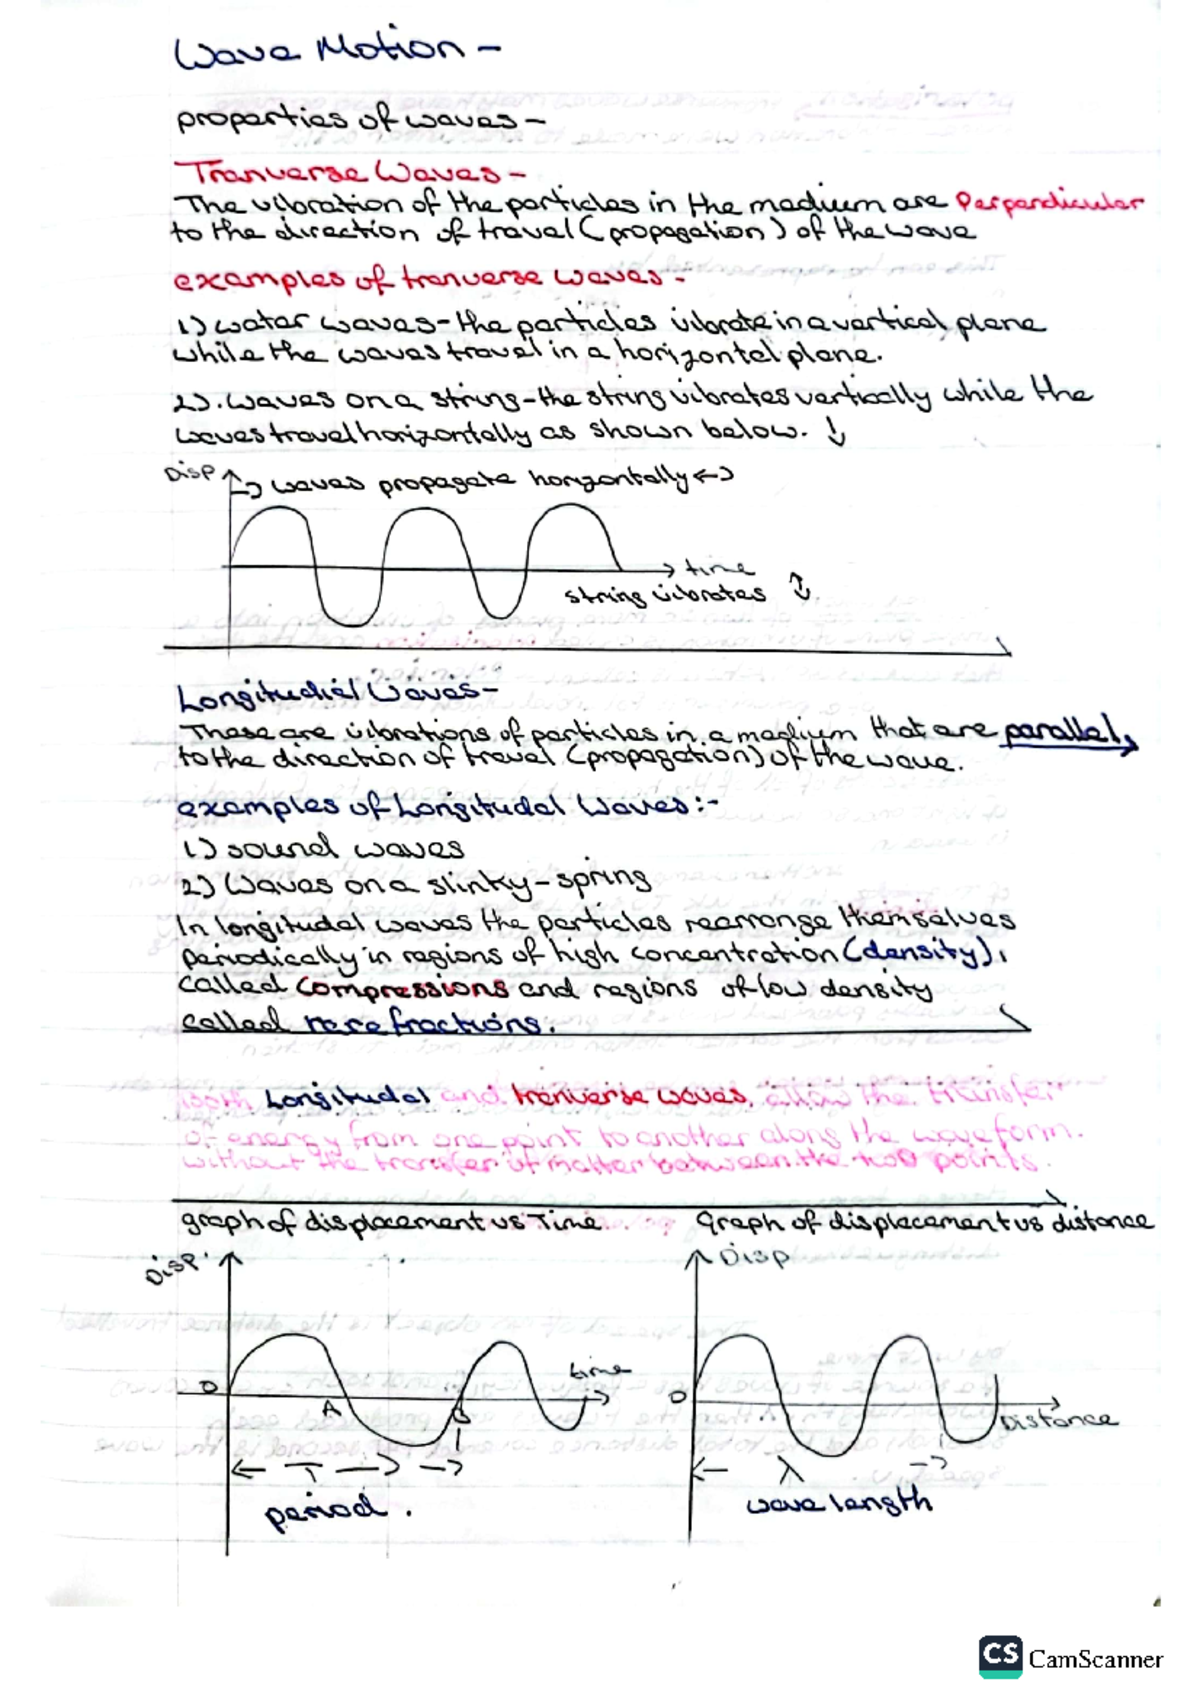 Wave Motion -
properties of waves -
Tranverse Waves -
The vibration of the particles in the medium are Perpendicular
to the direction of travel (propagation) of the wave
examples of tranverse waves -
1) water waves - the particles vibrate in a vertical plane
while the waves travel in a horizontal plane.
2). waves on a string - the string vibrates vertically while the
waves travel horizontally as shown below. ↓
Disp
→ waves propagate horizontally ↔
time
string vibrates ↕
Longitudial Waves -
These are vibrations of particles in a medium that are parallel
to the direction of travel (propagation) of the wave.
examples of Longitudal Waves:-
1) sound waves
2) Waves on a slinky - spring
In longitudal waves the particles rearrange themselves
periodically in regions of high concentration (density),
called compressions and regions of low density
called rarefractions.
Both Longitudal and tranverse waves, allow the transfer
of energy from one point to another along the wave form.
without the transfer of matter between the two points.
graph of displacement vs Time
Graph of displacement vs distance
Disp
Disp
time
O
O
A
B
Distance
← T → →
← λ →
period.
wave length
CS CamScanner